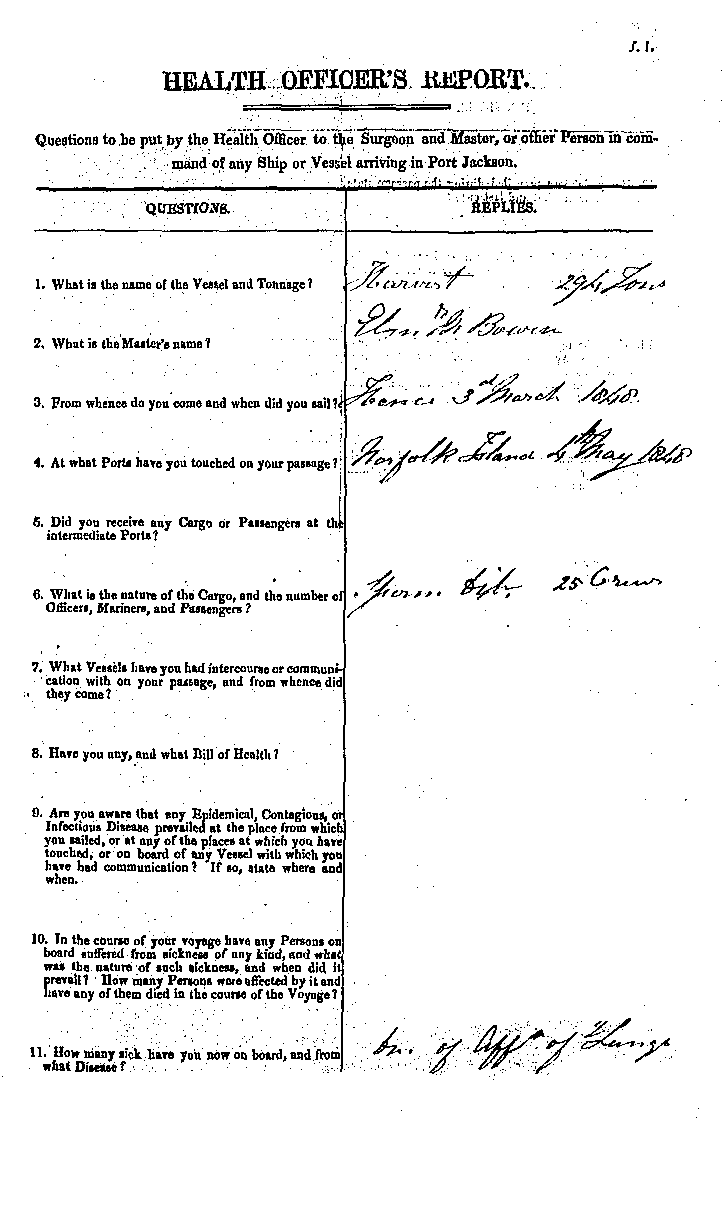 J. 1.
HEALTH OFFICER'S REPORT.
Questions to be put by the Health Officer to the Surgeon and Master, or other Person in com-
mand of any Ship or Vessel arriving in Port Jackson.
QUESTIONS. REPLIES.
1. What is the name of the Vessel and Tonnage? Harvest 294 Tons
2. What is the Master's name? Bowen
3. From whence do you come and when did you sail? Hence 3rd March 1848.
4. At what Ports have you touched on your passage? Norfolk Island 4th May 1848
5. Did you receive any Cargo or Passengers at the
intermediate Ports?
6. What is the nature of the Cargo, and the number of Sperm 25 Crew
Officers, Mariners, and Passengers?
7. What Vessels have you had intercourse or communi-
cation with on your passage, and from whence did
they come?
8. Have you any, and what Bill of Health?
9. Are you aware that any Epidemical, Contagious, or
Infectious Disease prevailed at the place from which
you sailed, or at any of the places at which you have
touched, or on board of any Vessel with which you
have had communication? If so, state where and
when.
10. In the course of your voyage have any Persons on
board suffered from sickness of any kind, and what
was the nature of such sickness, and when did it
prevail? How many Persons were affected by it and
have any of them died in the course of the Voyage?
11. How many sick have you now on board, and from of Affn of Lungs
what Disease?